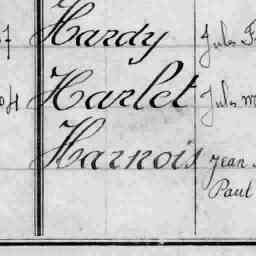 Hardy Jules
Harlet Jules
Harnois Jean
Paul